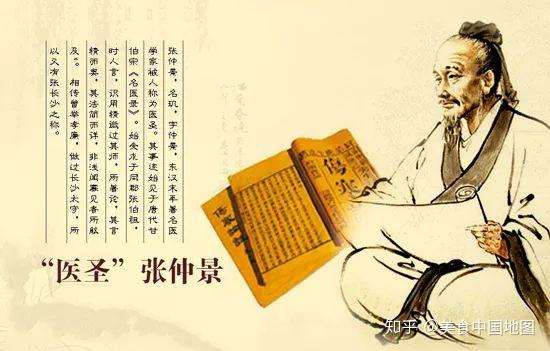 张仲景，名玑，字仲景，东汉末年著名医
学家被人称为医圣。其事迹始见于唐代甘
伯宗《名医录》。始受术于同郡张伯祖，
时人言，识用精微过其师，所著论，其言
精而奥，其法简而详，非浅闻寡见者所能
及"。相传曾举孝廉，做过长沙太守，所
以又有张长沙之称。
“医圣”张仲景
知乎 @美食中国地图